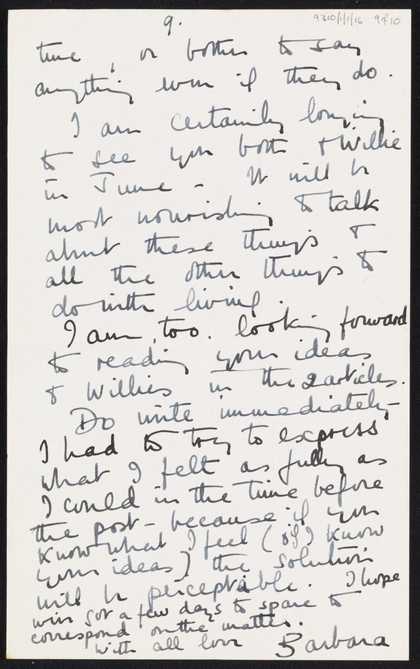 9.
9210/1/1/16
time, or bother to say
anything even if they do.
I am certainly longing
to see you both & Willie
in June - It will be
most nourishing to talk
about these things &
all the other things to
do with living.
I am, too, looking forward
to reading your ideas
& Willies in the 2 articles.
Do write immediately -
I had to try to express
what I felt as fully as
I could in the time before
the post - because if you
know what I feel (& if I know
your ideas) the solution
will be perceptable. I hope
got a few days to spare to
correspond on the matter.
With all love Barbara